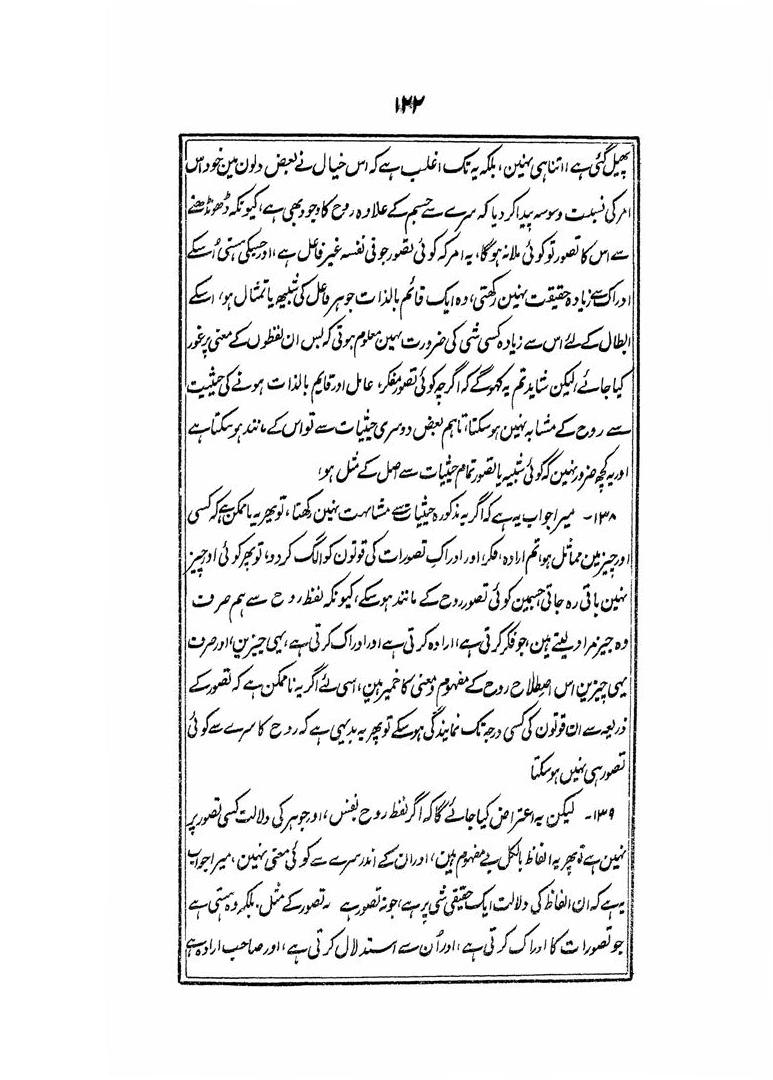 ۱۲۲
پھیل گئی ہے، اتنا ہی نہین، بلکہ یہ تک اغلب ہے کہ اس خیال نے بعض دلون مین خود اس
امر کی نسبت وسوسہ پیدا کر دیا کہ سرے سے جسم کے علاوہ روح کا وجود بھی ہے، کیونکہ ڈھونڈھنے
سے اس کا تصور تو کوئی ملا نہ ہوگا، یہ امر کہ کوئی تصور جو فی نفسہ غیر فاعل ہے، اور جسکی ہستی اُسکے
ادراک سے زیادہ حقیقت نہین رکھتی، وہ ایک قائم بالذات جوہر فاعل کی شبیھ یا تمثال ہو، اسکے
ابطال کے لئے اس سے زیادہ کسی شی کی ضرورت نہین معلوم ہوتی کہ بس ان لفظون کے معنی پر غور
کیا جائے، لیکن شاید تم یہ کہو گے کہ اگرچہ کوئی تصور مفکر، عامل اور قایم بالذات ہونے کی حیثیت
سے روح کے مشابہ نہین ہو سکتا، تاہم بعض دوسری حیثیات سے تو اس کے مانند ہو سکتا ہے
اور یہ کچھ ضرور نہین کہ کوئی شبیہ یا تصور تمام حیثیات سے اصل کے مثل ہو،
۱۳۸۔ میرا جواب یہ ہے کہ اگر یہ مذکورہ حیثیات سے مشابہت نہین رکھتا، تو پھر یہ ناممکن ہے کہ کسی
اور چیز مین مماثل ہو، تم ارادہ، فکر، اور ادراکِ تصورات کی قوتون کو الگ کر دو، تو پھر کوئی اور چیز
نہین باقی رہ جاتی جسمین کوئی تصور روح کے مانند ہو سکے، کیونکہ لفظ روح سے ہم صرف
وہ چیز مراد لیتے ہین، جو فکر کرتی ہے، ارادہ کرتی ہے اور ادراک کرتی ہے، یہی چیزین، اور صرف
یہی چیزین اس اصطلاح روح کے مفہوم و معنی کا خمیر ہین، اسی لئے اگر یہ ناممکن ہے کہ تصور کے
ذریعہ سے ان قوتون کی کسی درجہ تک نمایندگی ہو سکے تو پھر یہ بدیہی ہے کہ روح کا سرے سے کوئی
تصور ہی نہیں ہو سکتا
۱۳۹۔ لیکن یہ اعتراض کیا جائے گا کہ اگر لفظ روح، نفس، اور جوہر کی دلالت کسی تصور پر
نہین ہے تو پھر یہ الفاظ بالکل بے مفہوم ہین، اور ان کے اندر سرے سے کوئی معنی نہین، میرا جواب
یہ ہے کہ ان الفاظ کی دلالت ایک حقیقی شی پر ہے، جو نہ تصور ہے نہ تصور کے مثل، بلکہ وہ ہستی ہے
جو تصورات کا ادراک کرتی ہے، اور اُن سے استدلال کرتی ہے، اور صاحب ارادہ ہے